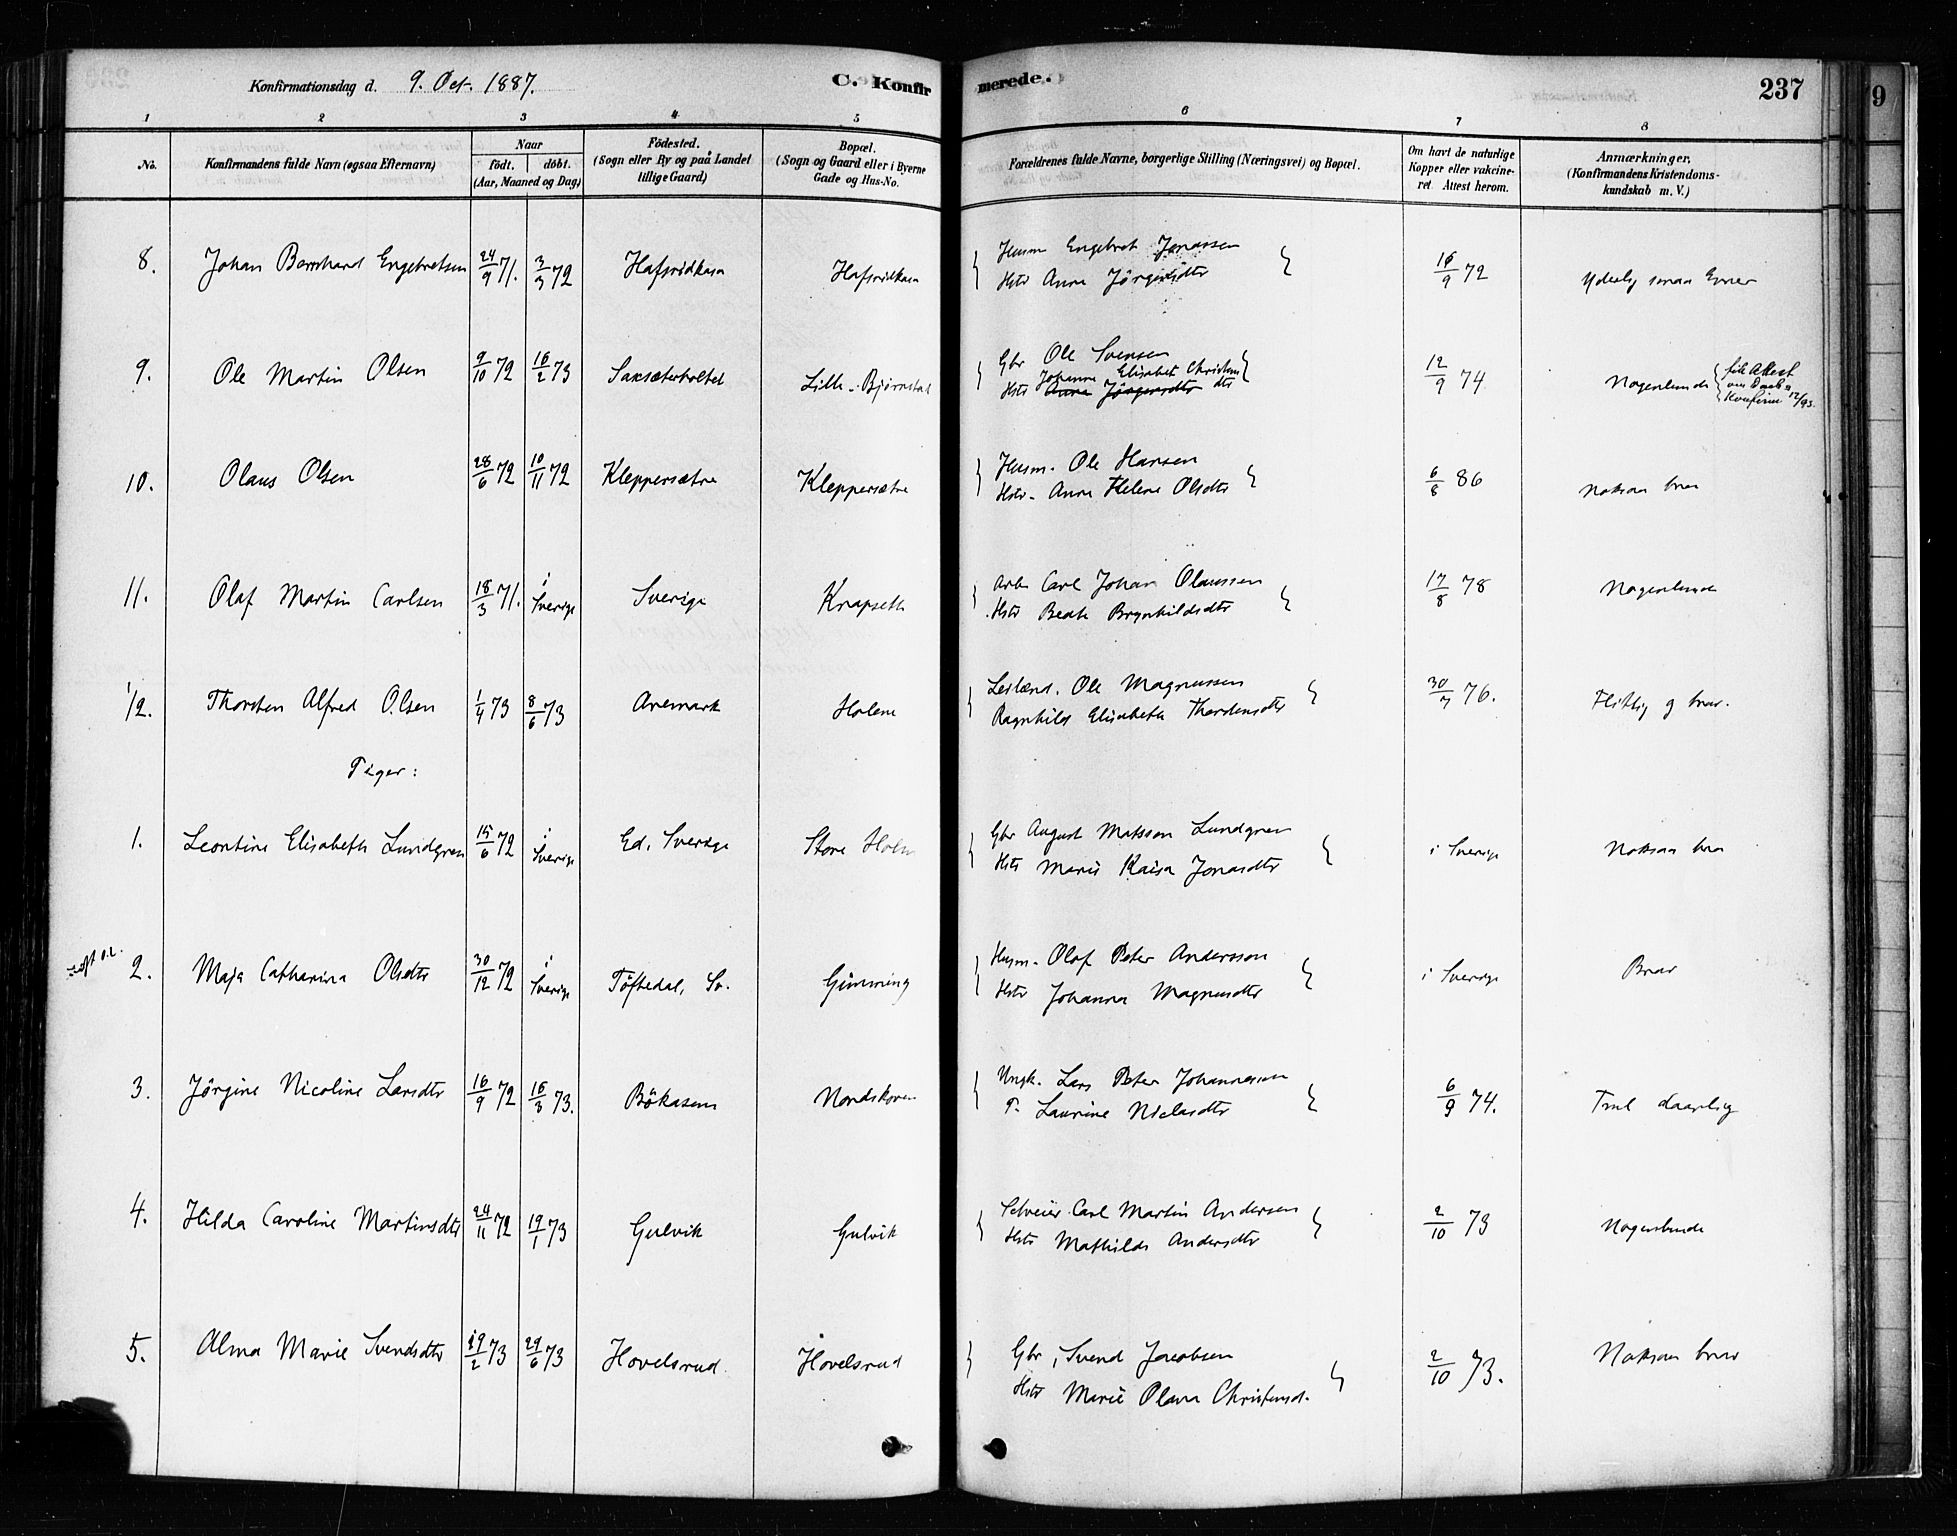 Konfirmationsdag d. 9. Oct. 1887. C. Konfirmerede. 237
1 2 3 4 5 6 7 8
No. Konfirmandens fulde Navn (ogsaa Efternavn) Naar født. døbt. (Aar, Maaned og Dag) Fødested. (Sogn eller By og paa Landet tillige Gaard) Bopæl. (Sogn og Gaard eller i Byerne Gade og Hus-No. Forældrenes fulde Navne, borgerlige Stilling (Næringsvei) og Bopæl. Om havt de naturlige Kopper eller vakcineret Attest herom. Anmærkninger. (Konfirmandens Kristendomskundskab m. V.)
8. Johan Bernhard Engebretsen 24/9 71. 3/3 72 Hafsrødkasa Hafsrødkasa Husm Engebret Jonassen 16/9 72 Yderlig smaa Evner
Hstr Anne Jørgensdtr
9. Ole Martin Olsen 9/10 72 16/2 73 Saksæterholtet Lille-Bjørnstad Gbr Ole Svensen 12/9 74 Nogenlunde fik Attest
Johanne Elisabet Christens om Daab &
Hstr Anne Jørgensdtr dtr Konfirm 12/93.
10. Olaus Olsen 28/6 72 10/11 72 Kleppersætre Kleppersætre Husm. Ole Hansen 6/8 86 Noksaa brav
Hstr. Anne Helene Olsdtr
11. Olaf Martin Carlsen 18/3 71. i Sverige Sverige Knapseth Arb Carl Johan Olaussen 17/8 78 Nogenlunde
Hstr Beate Brynhildsdtr
12. Thorsten Alfred Olsen 1/4 73 8/6 73 Aremark Holene Leilænd. Ole Magnussen 30/7 76. Flittig og brav.
Ragnhild Elisabeth Thordensdtr
Piger:
1. Leontine Elisabeth Lundgren 15/6 72 i Sverige Ed, Sverige Store Holm Gbr August Matsson Lundgren i Sverige Noksaa brav
Hstr Marie Kaisa Jonasdtr
2. Maja Catharina Olsdtr 30/12 72 i Sverige Töftedal, Sv. Gimming Husm. Olof Peter Andersson i Sverige Brav
Hstr Johanna Magnusdtr
3. Jørgine Nicoline Larsdtr 16/9 72 16/3 73. Bökasen Nordskoven Ungk. Lars Peter Johannessen 6/9 74. Tml daarlig
P. Laurine Nielsdtr
4. Hilda Caroline Martinsdtr 24/11 72 19/1 73 Gulvik Gulvik Selveier Carl Martin Andersen 2/10 73 Nogenlunde
Hstr Mathilde Andersdtr
5. Alma Marie Svendsdtr 19/2 73 29/6 73 Hovelsrud Hovelsrud Gbr, Svend Jacobsen 2/10 73. Noksaa brav
Hstr Marie Olava Christensd.